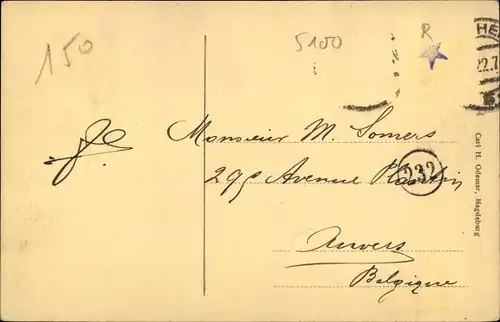 150
5100
R
HE
22.7
Monsieur M. Somers
29e Avenue Plantin
232
Anvers
Belgique
Carl H. Odemar, Magdeburg